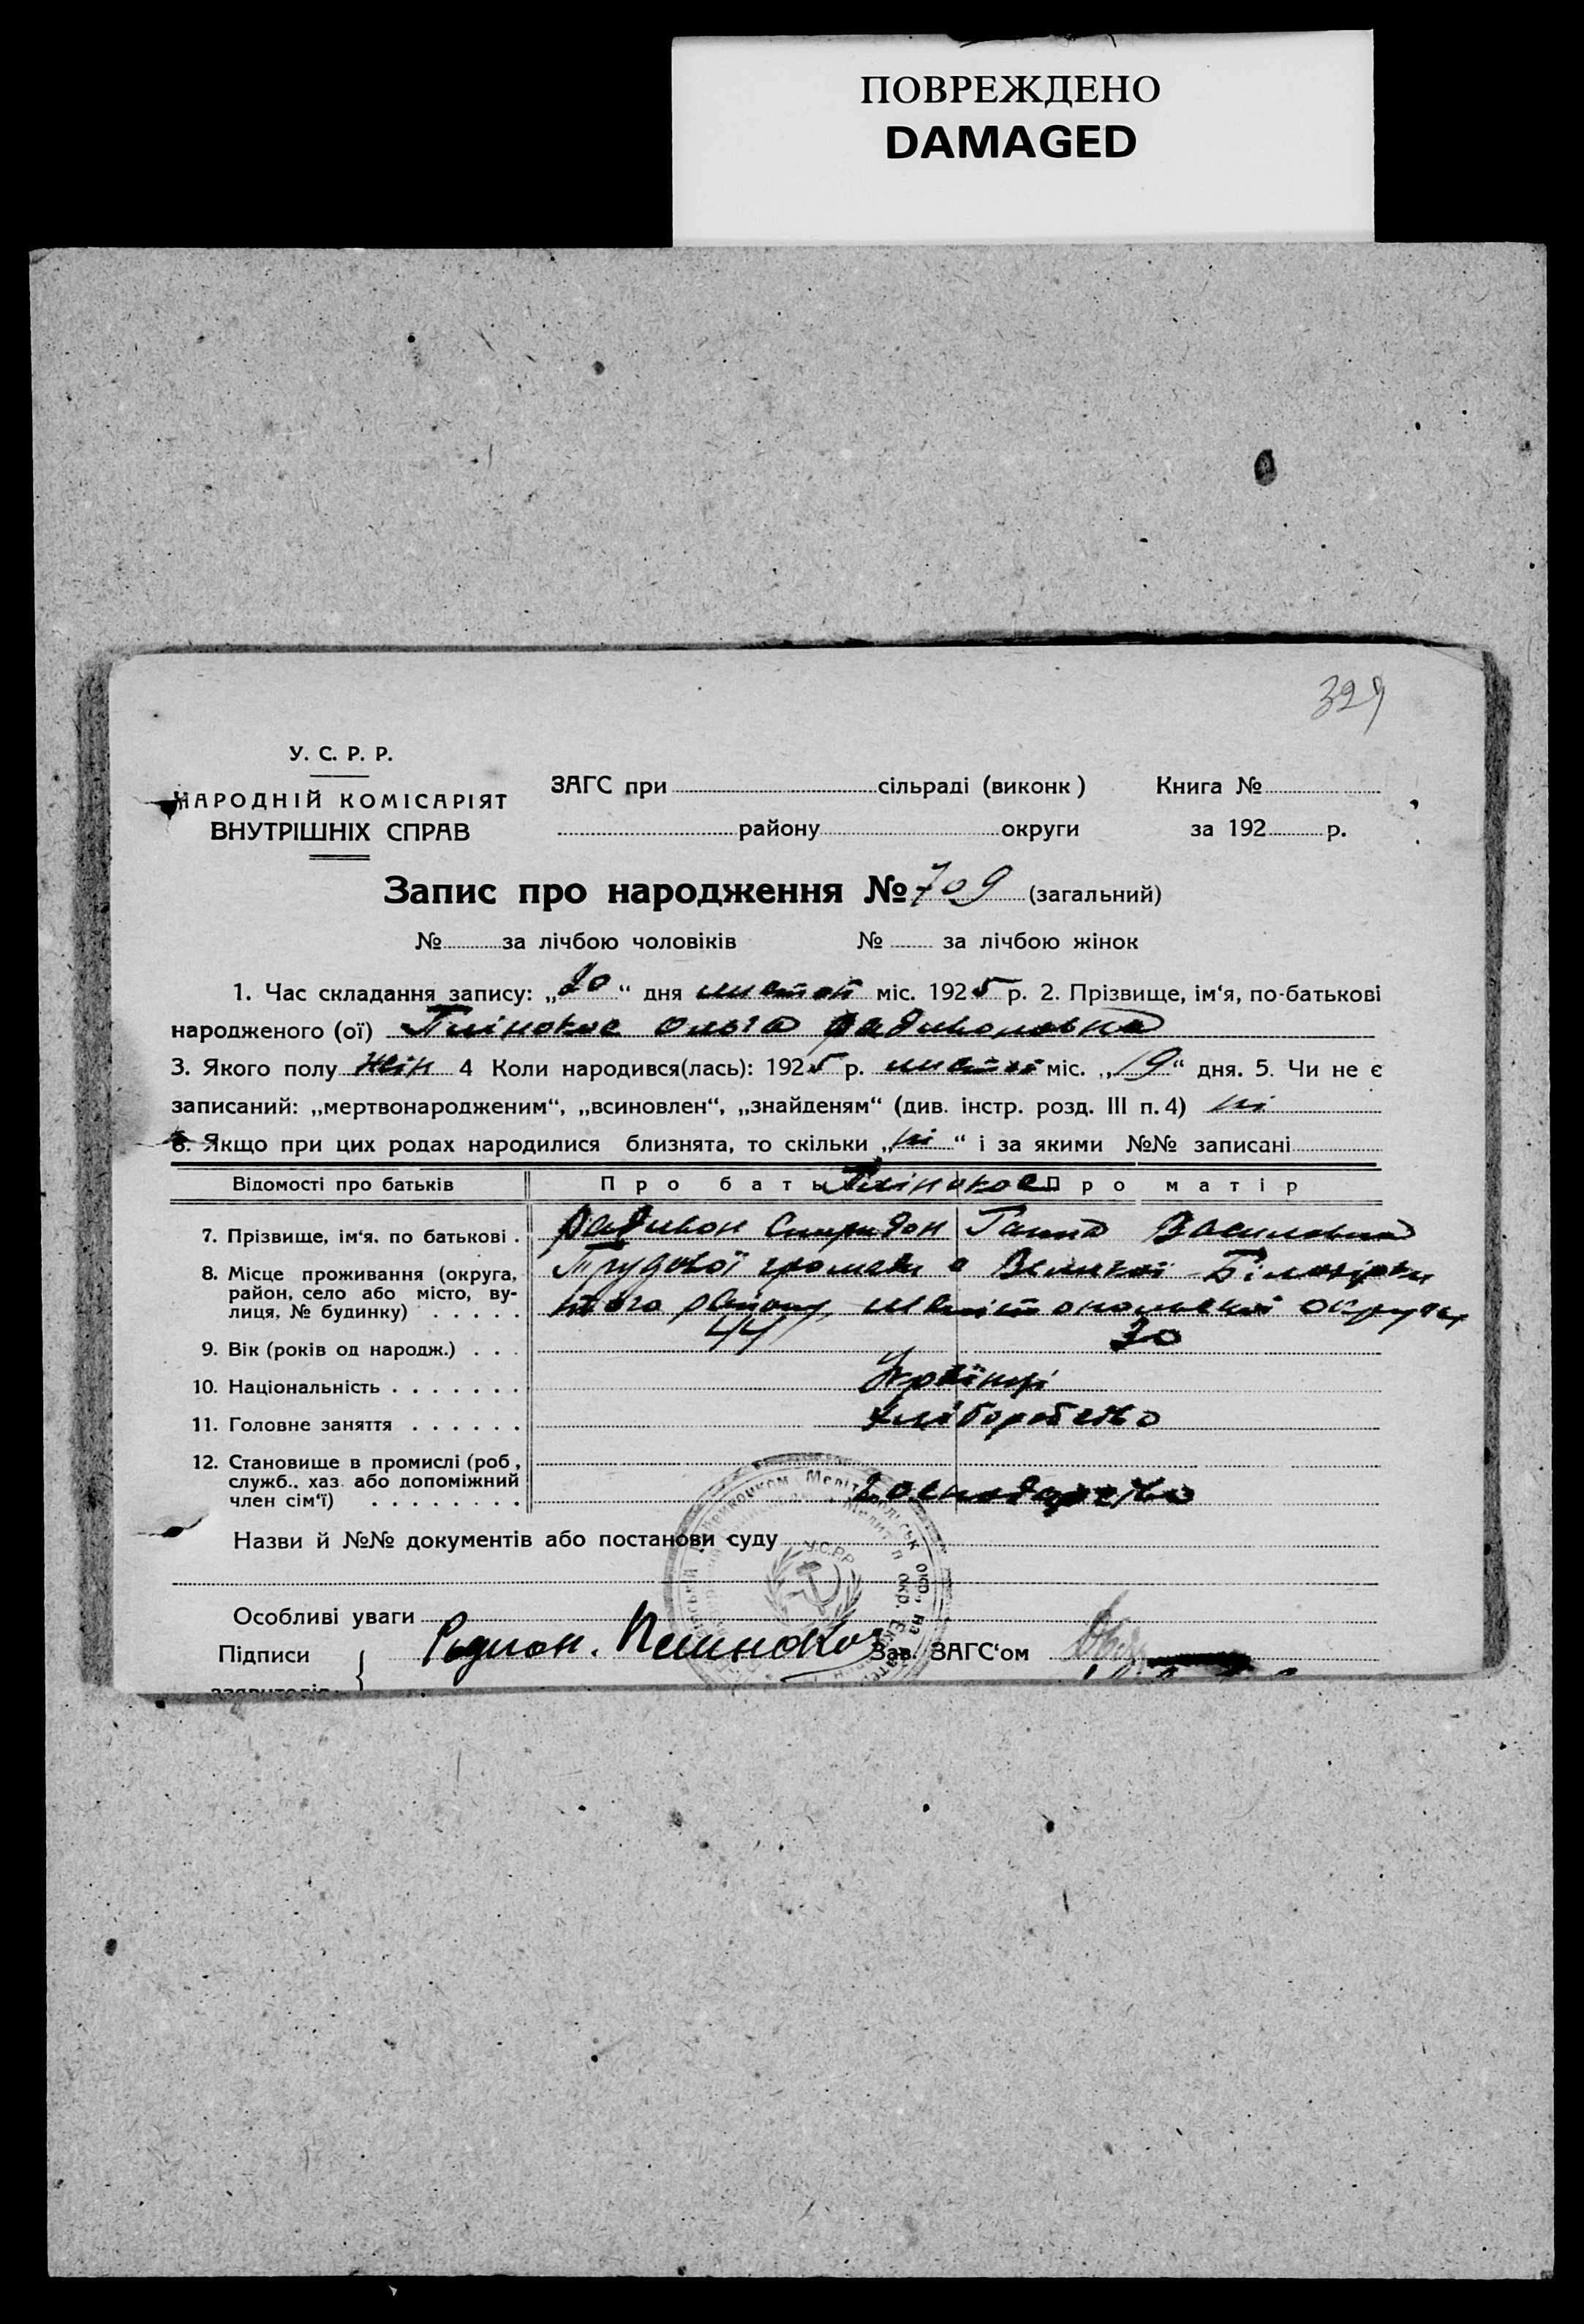 ПОВРЕЖДЕНО
DAMAGED
329
У. С. Р. Р.
НАРОДНІЙ КОМІСАРІЯТ
ВНУТРІШНІХ СПРАВ
ЗАГС при сільраді (виконк) Книга №
району округи за 192 р.
Запис про народження № 709 (загальний)
№ за лічбою чоловіків № за лічбою жінок
1. Час складання запису: „20“ дня листоп міс. 1925 р. 2. Прізвище, ім‘я, по-батькові
народженого (ої) Ольга Радивоновна
3. Якого полу жін 4 Коли народився(лась): 1925 р. листоп міс. „19“ дня. 5. Чи не є
записаний: „мертвонародженим“, „всиновлен“, „знайденям“ (див. інстр. розд. III п. 4) ні
6. Якщо при цих родах народилися близнята, то скільки „ні“ і за якими №№ записані
Відомості про батьків Про бать Про матір
7. Прізвище, ім‘я. по батькові . Радивон Спиридон Ганна Василовна
8. Місце проживання (округа, район, село або місто, вулиця, № будинку) . . . . . Трудової громади Великої Білозірки
району, округи
9. Вік (років од народж.) . . . 44 30
10. Національність . . . . . . . Українці
11. Головне заняття . . . . . . Хліборобство
12. Становище в промислі (роб, служб.. хаз. або допоміжний член сім‘ї) . . . . . . . . Господарство
Назви й №№ документів або постанови суду
У.С.Р.Р.
Особливі уваги
Підписи Родион. Зав. ЗАГС‘ом
заявителів